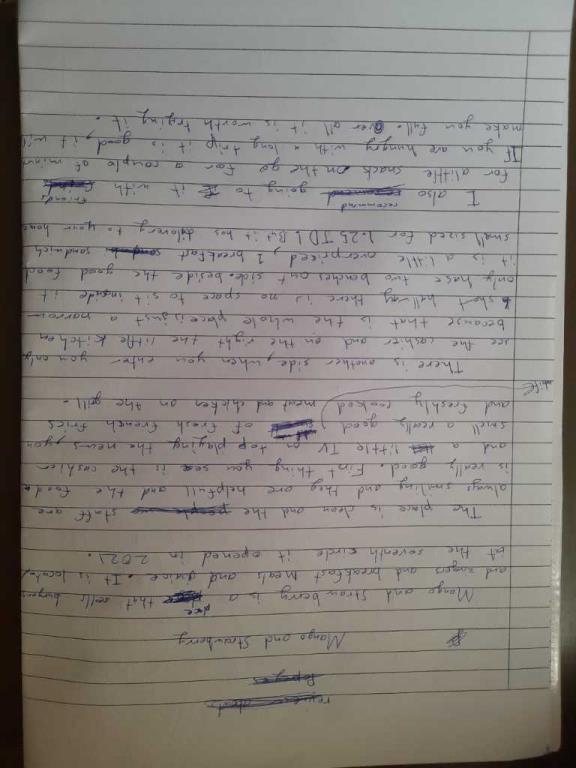 Mango and Strawberry
Mango and Strawberry is a place that sells burgers
and zingers and breakfast meals and juice. It is locate
at the seventh circle it opened in 2021.
The place is clean and the staff are
always smiling and they are helpfull and the food
is really good. First thing you see is the cashier
and a little TV on top playing the news, you
smell a really good of fresh french fries
and freshly cooked meat and chicken on the grill.
There is another side, when you enter you only
see the cashier and on the right the little kitchen
because that is the whole place is just a narrow
short hallway there is no space to sit inside it
only have two benches out side. beside the good food
it is a little overpriced, 1 breakfast sandwich
small sized for 1.25 JD! But it has delivery to your home
I also recommend going to it with friends
for a little snack on the go for a couple of minut
If you are hungry with a long trip it is good, it will
make you full. Over all it is worth trying it.